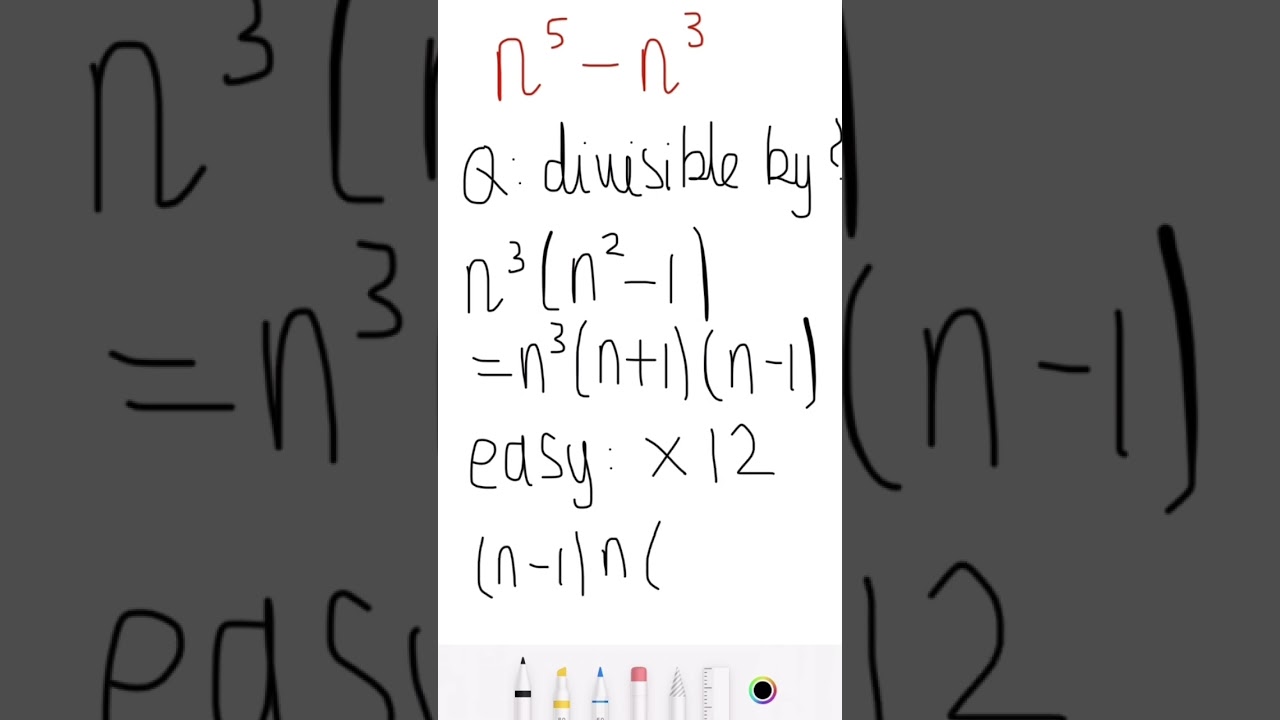 n⁵ − n³
Q: divisible by
n³(n²−1)
=n³(n+1)(n−1)
easy: ×12
(n−1)n(